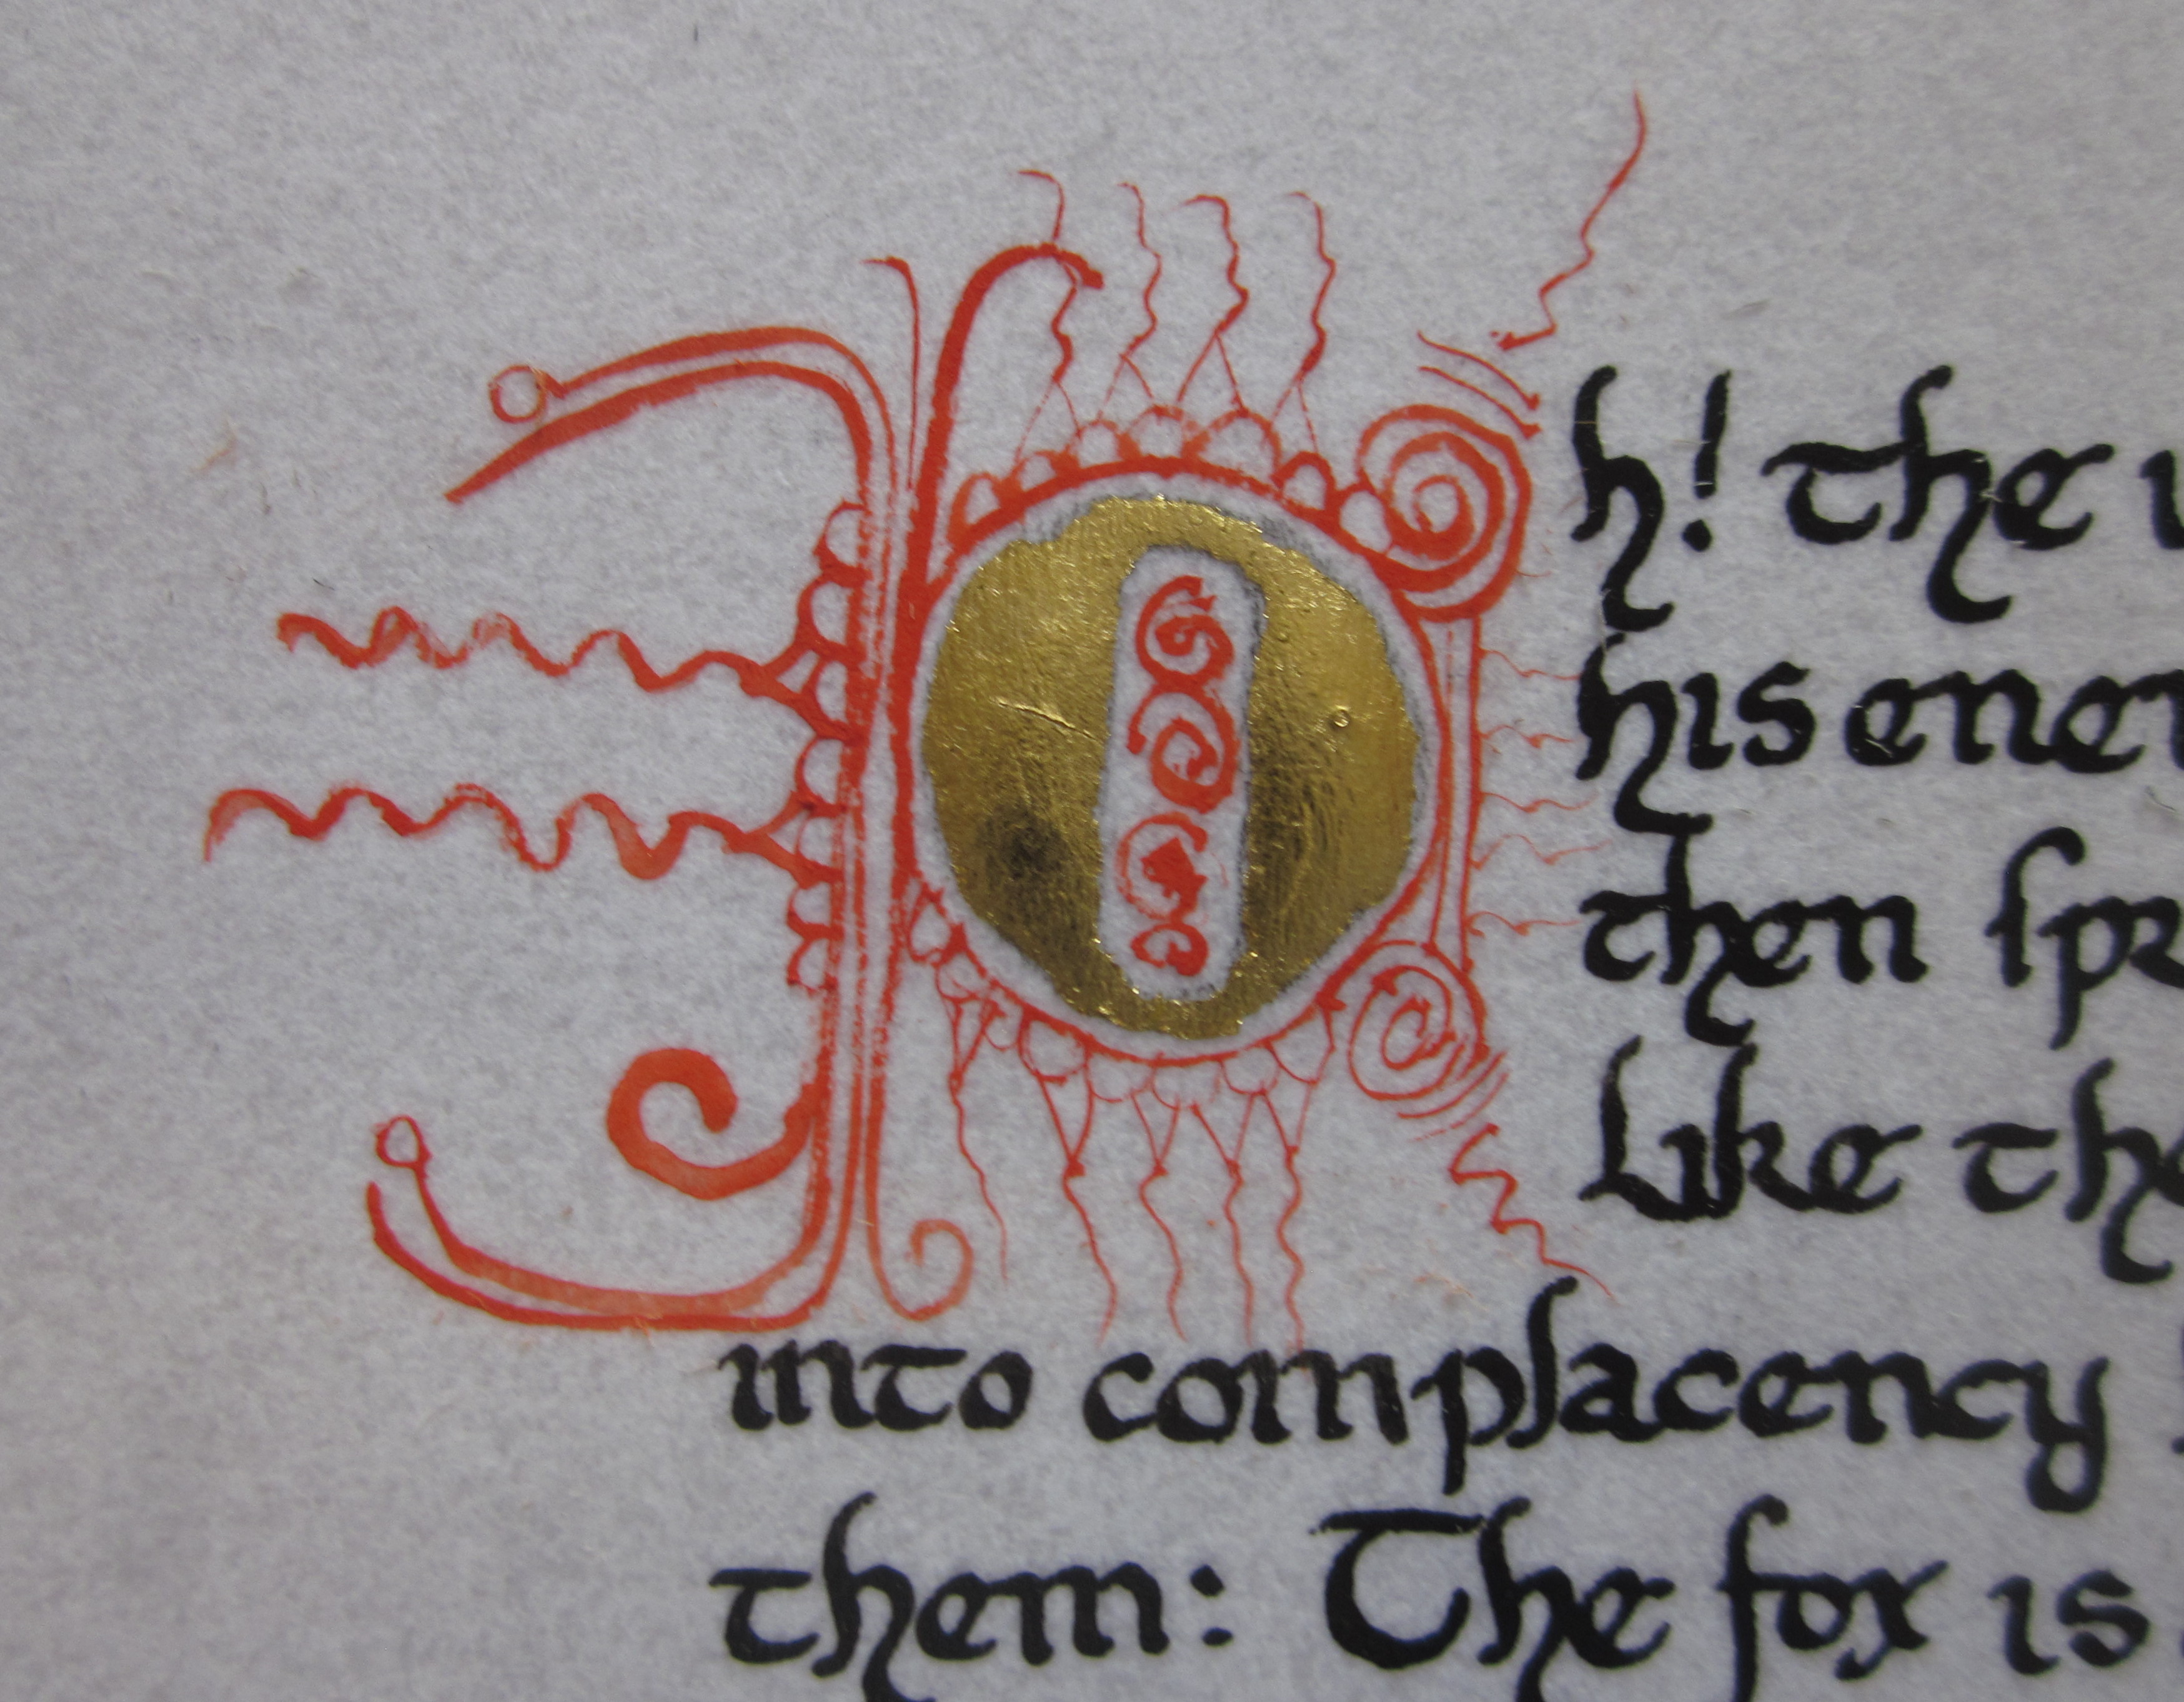 Oh! the
his
then
Like
into complacency
them: The fox is